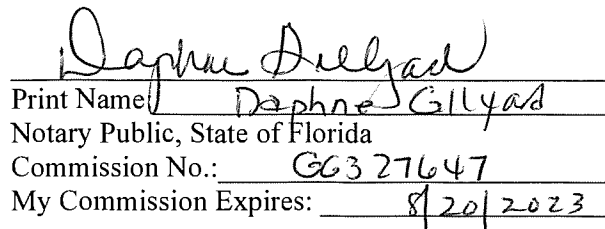 Daphne Gilyard
Print Name Daphne Gilyard
Notary Public, State of Florida
Commission No.: GG327647
My Commission Expires: 8/20/2023